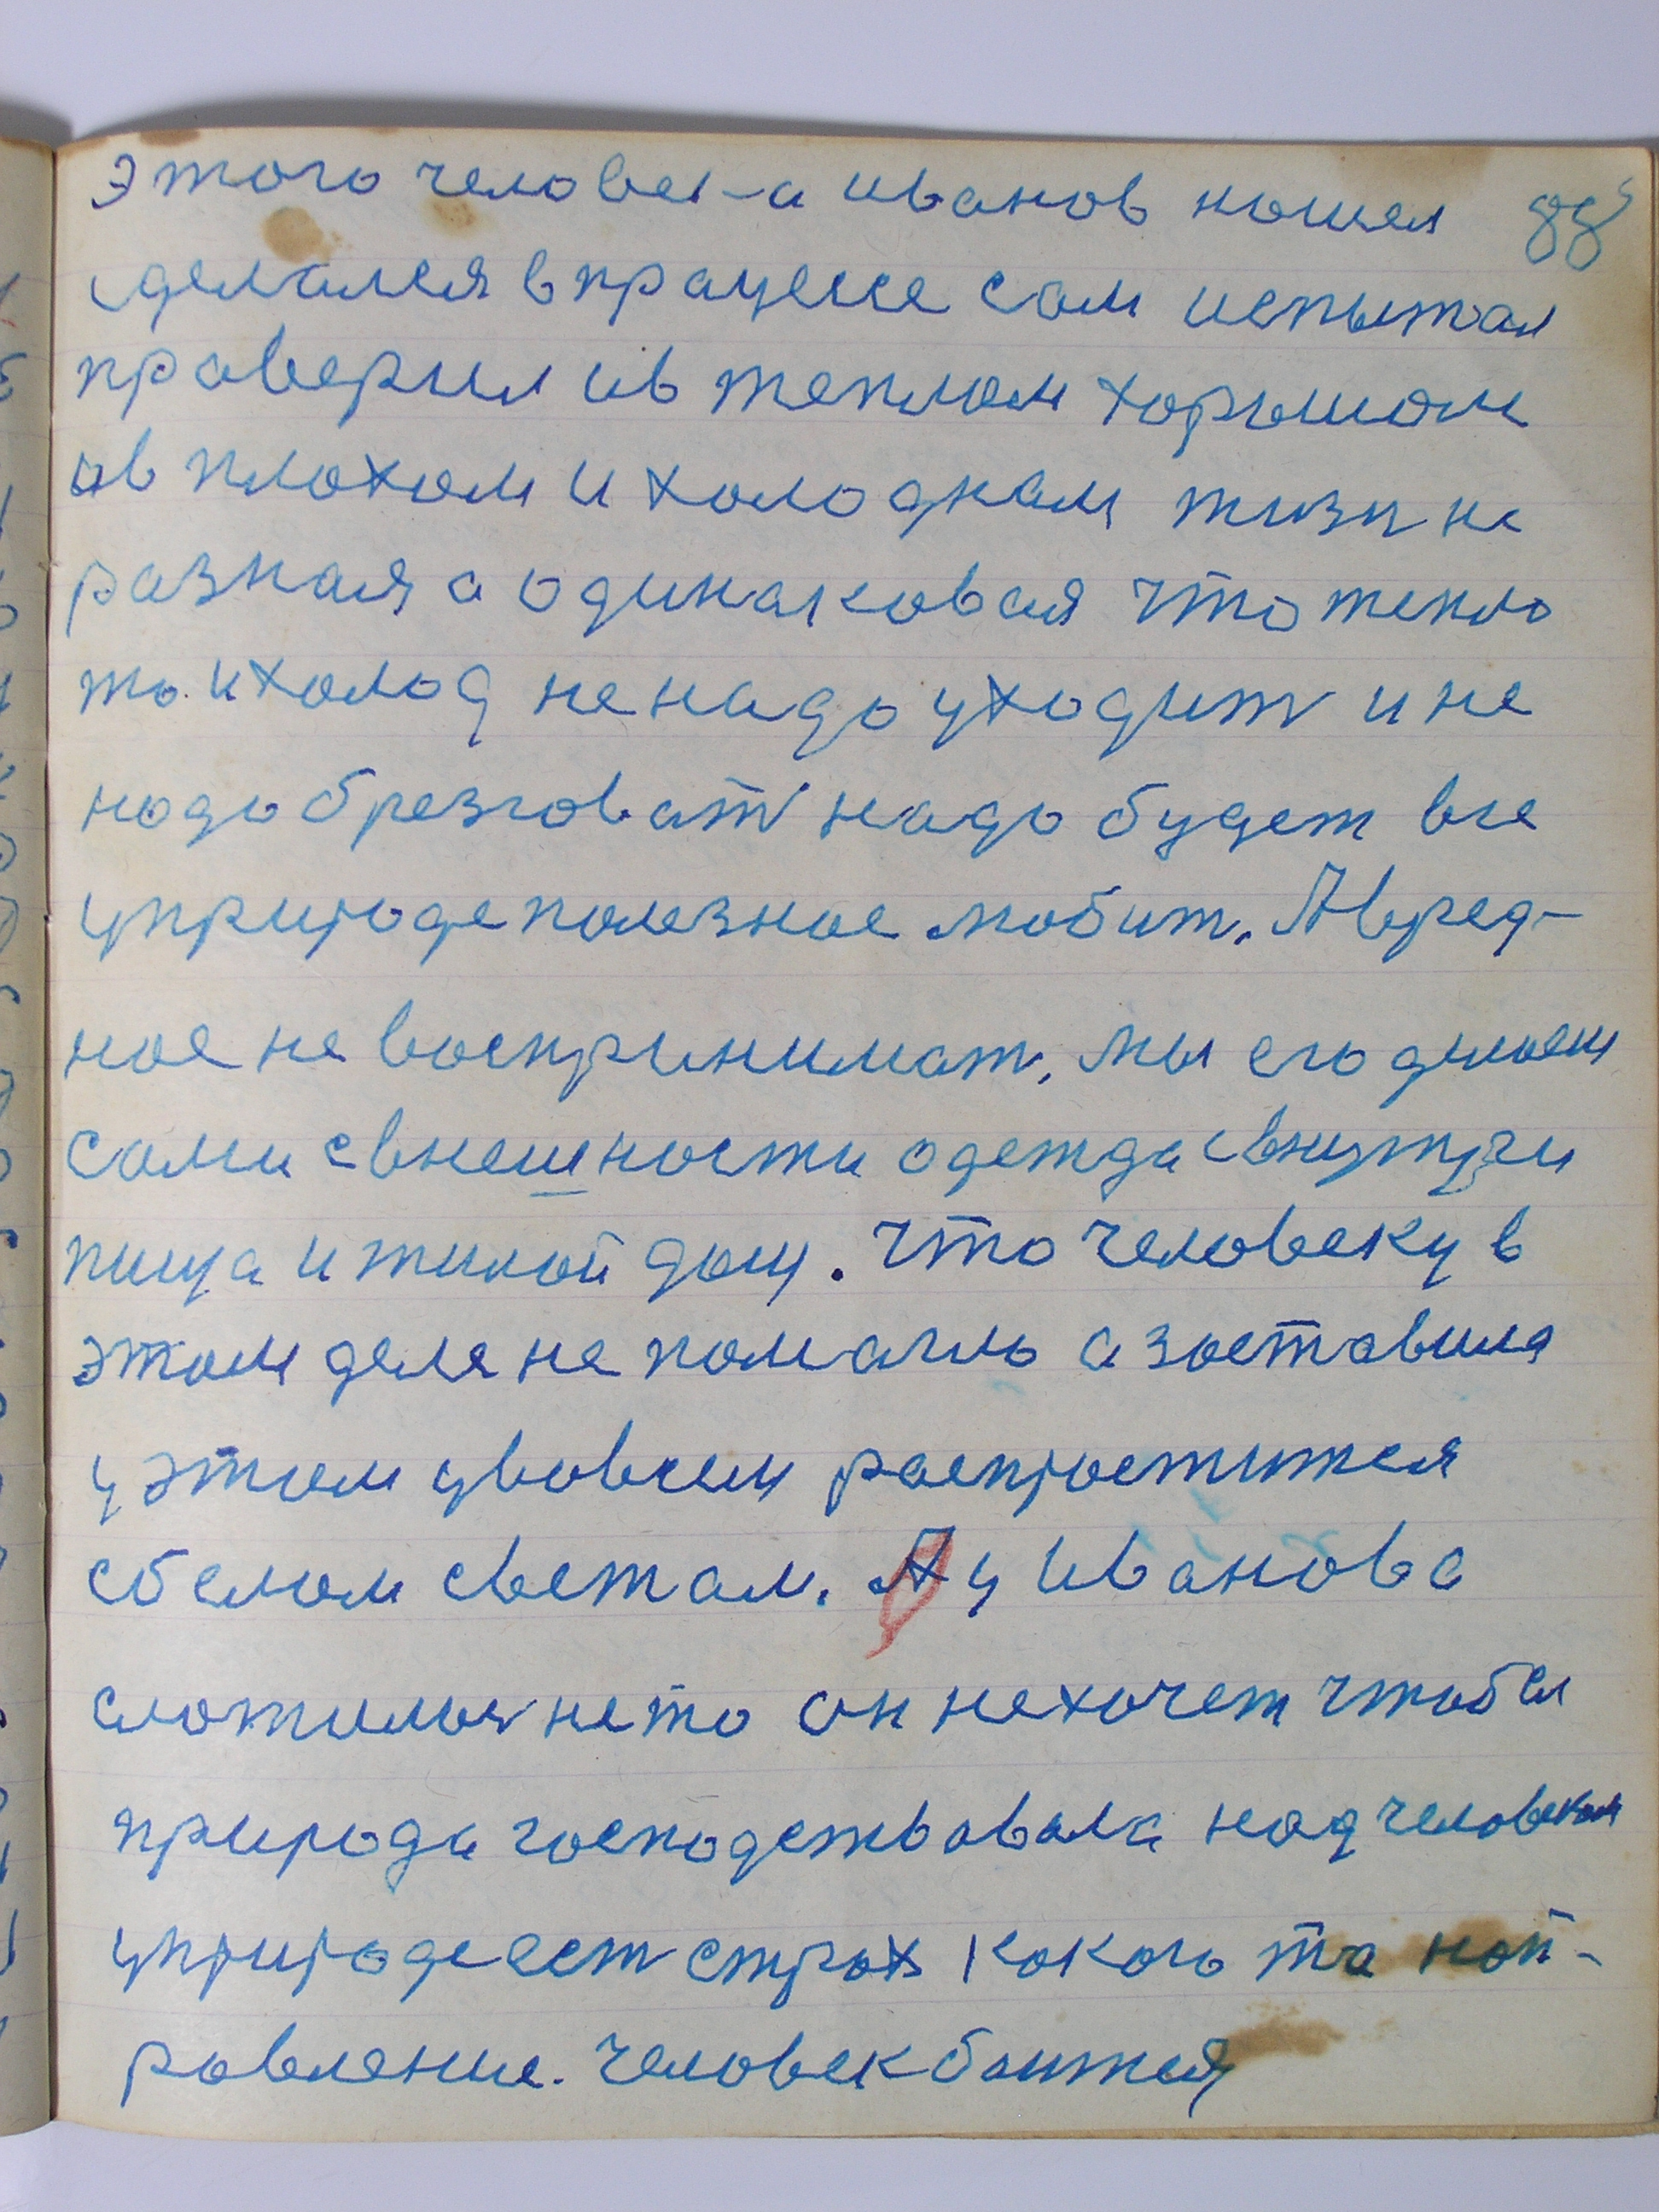 этого человек-а иванов ношел 88
сделался в працессе сам испытал
праверил ив теплом хорышом
ив плохом и холоднам жизн не
разная а одинаковая что тепло
то и холод не надо уходит и не
надо брезговат надо будет все
уприроде полезное любит. А вред-
ное не воспринимат, мы его делаем
сами свнешности одежда свнутри
пища и жилой дом. что человеку в
этом деле не помагло а зоставила
у этом увовсем распроститися
с белом светам. А у Иванова
сложилось не то он не хочет чтобы
природа господствовала над человекам
уприроде ест страх какого та нап-
равление. человек боится